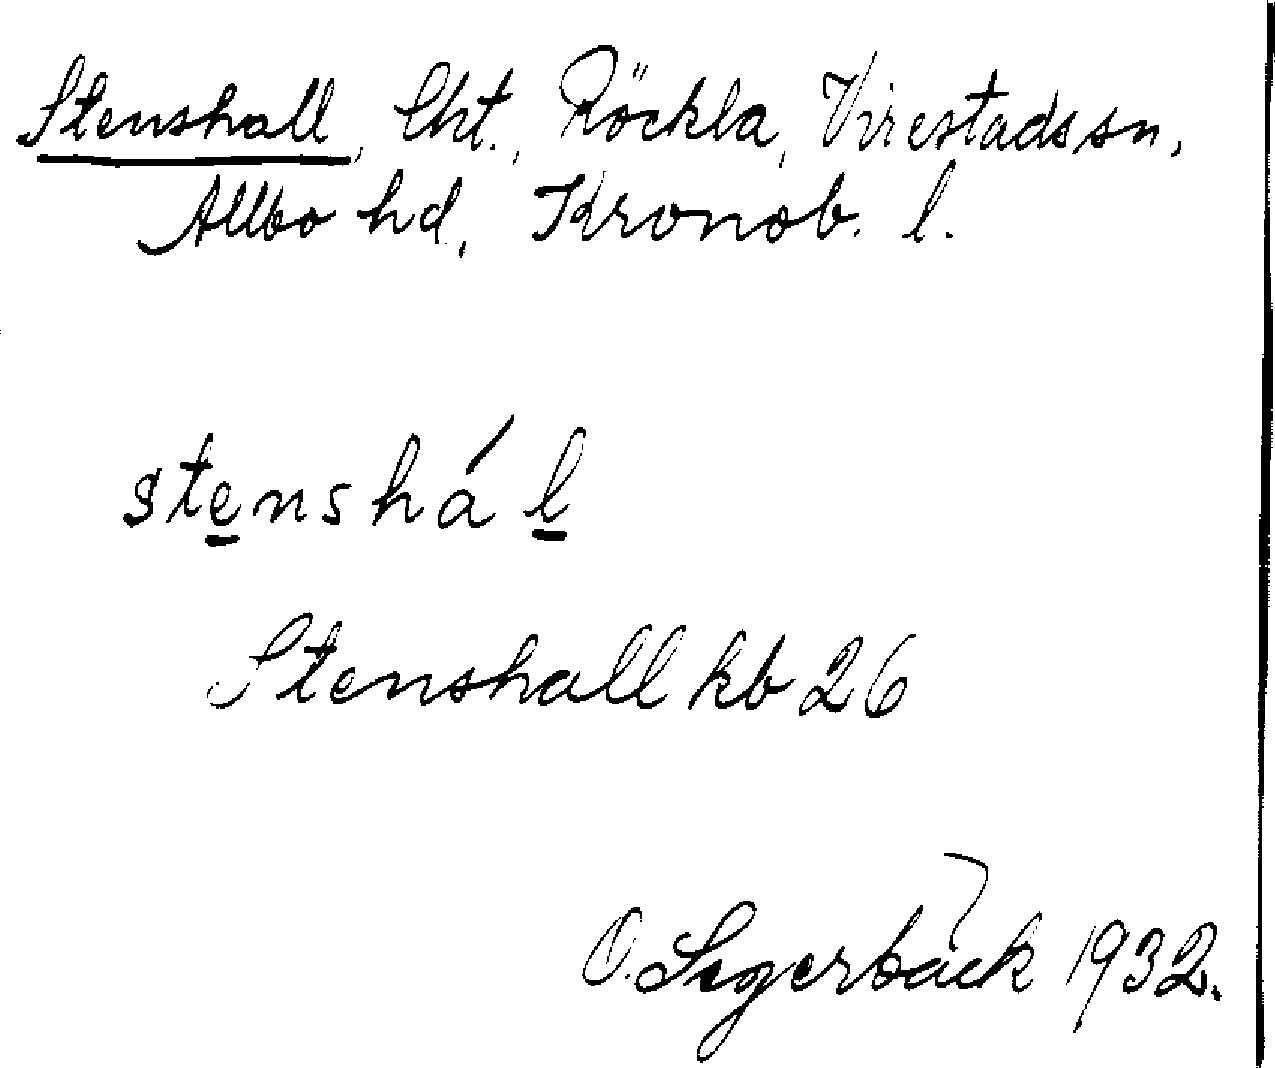 Stenshall, lht., Röckla, Virestads sn,
Allbo hd, Kronob. l.
stenshá l
Stenshall kb 26
O. Segerbäck 1932.